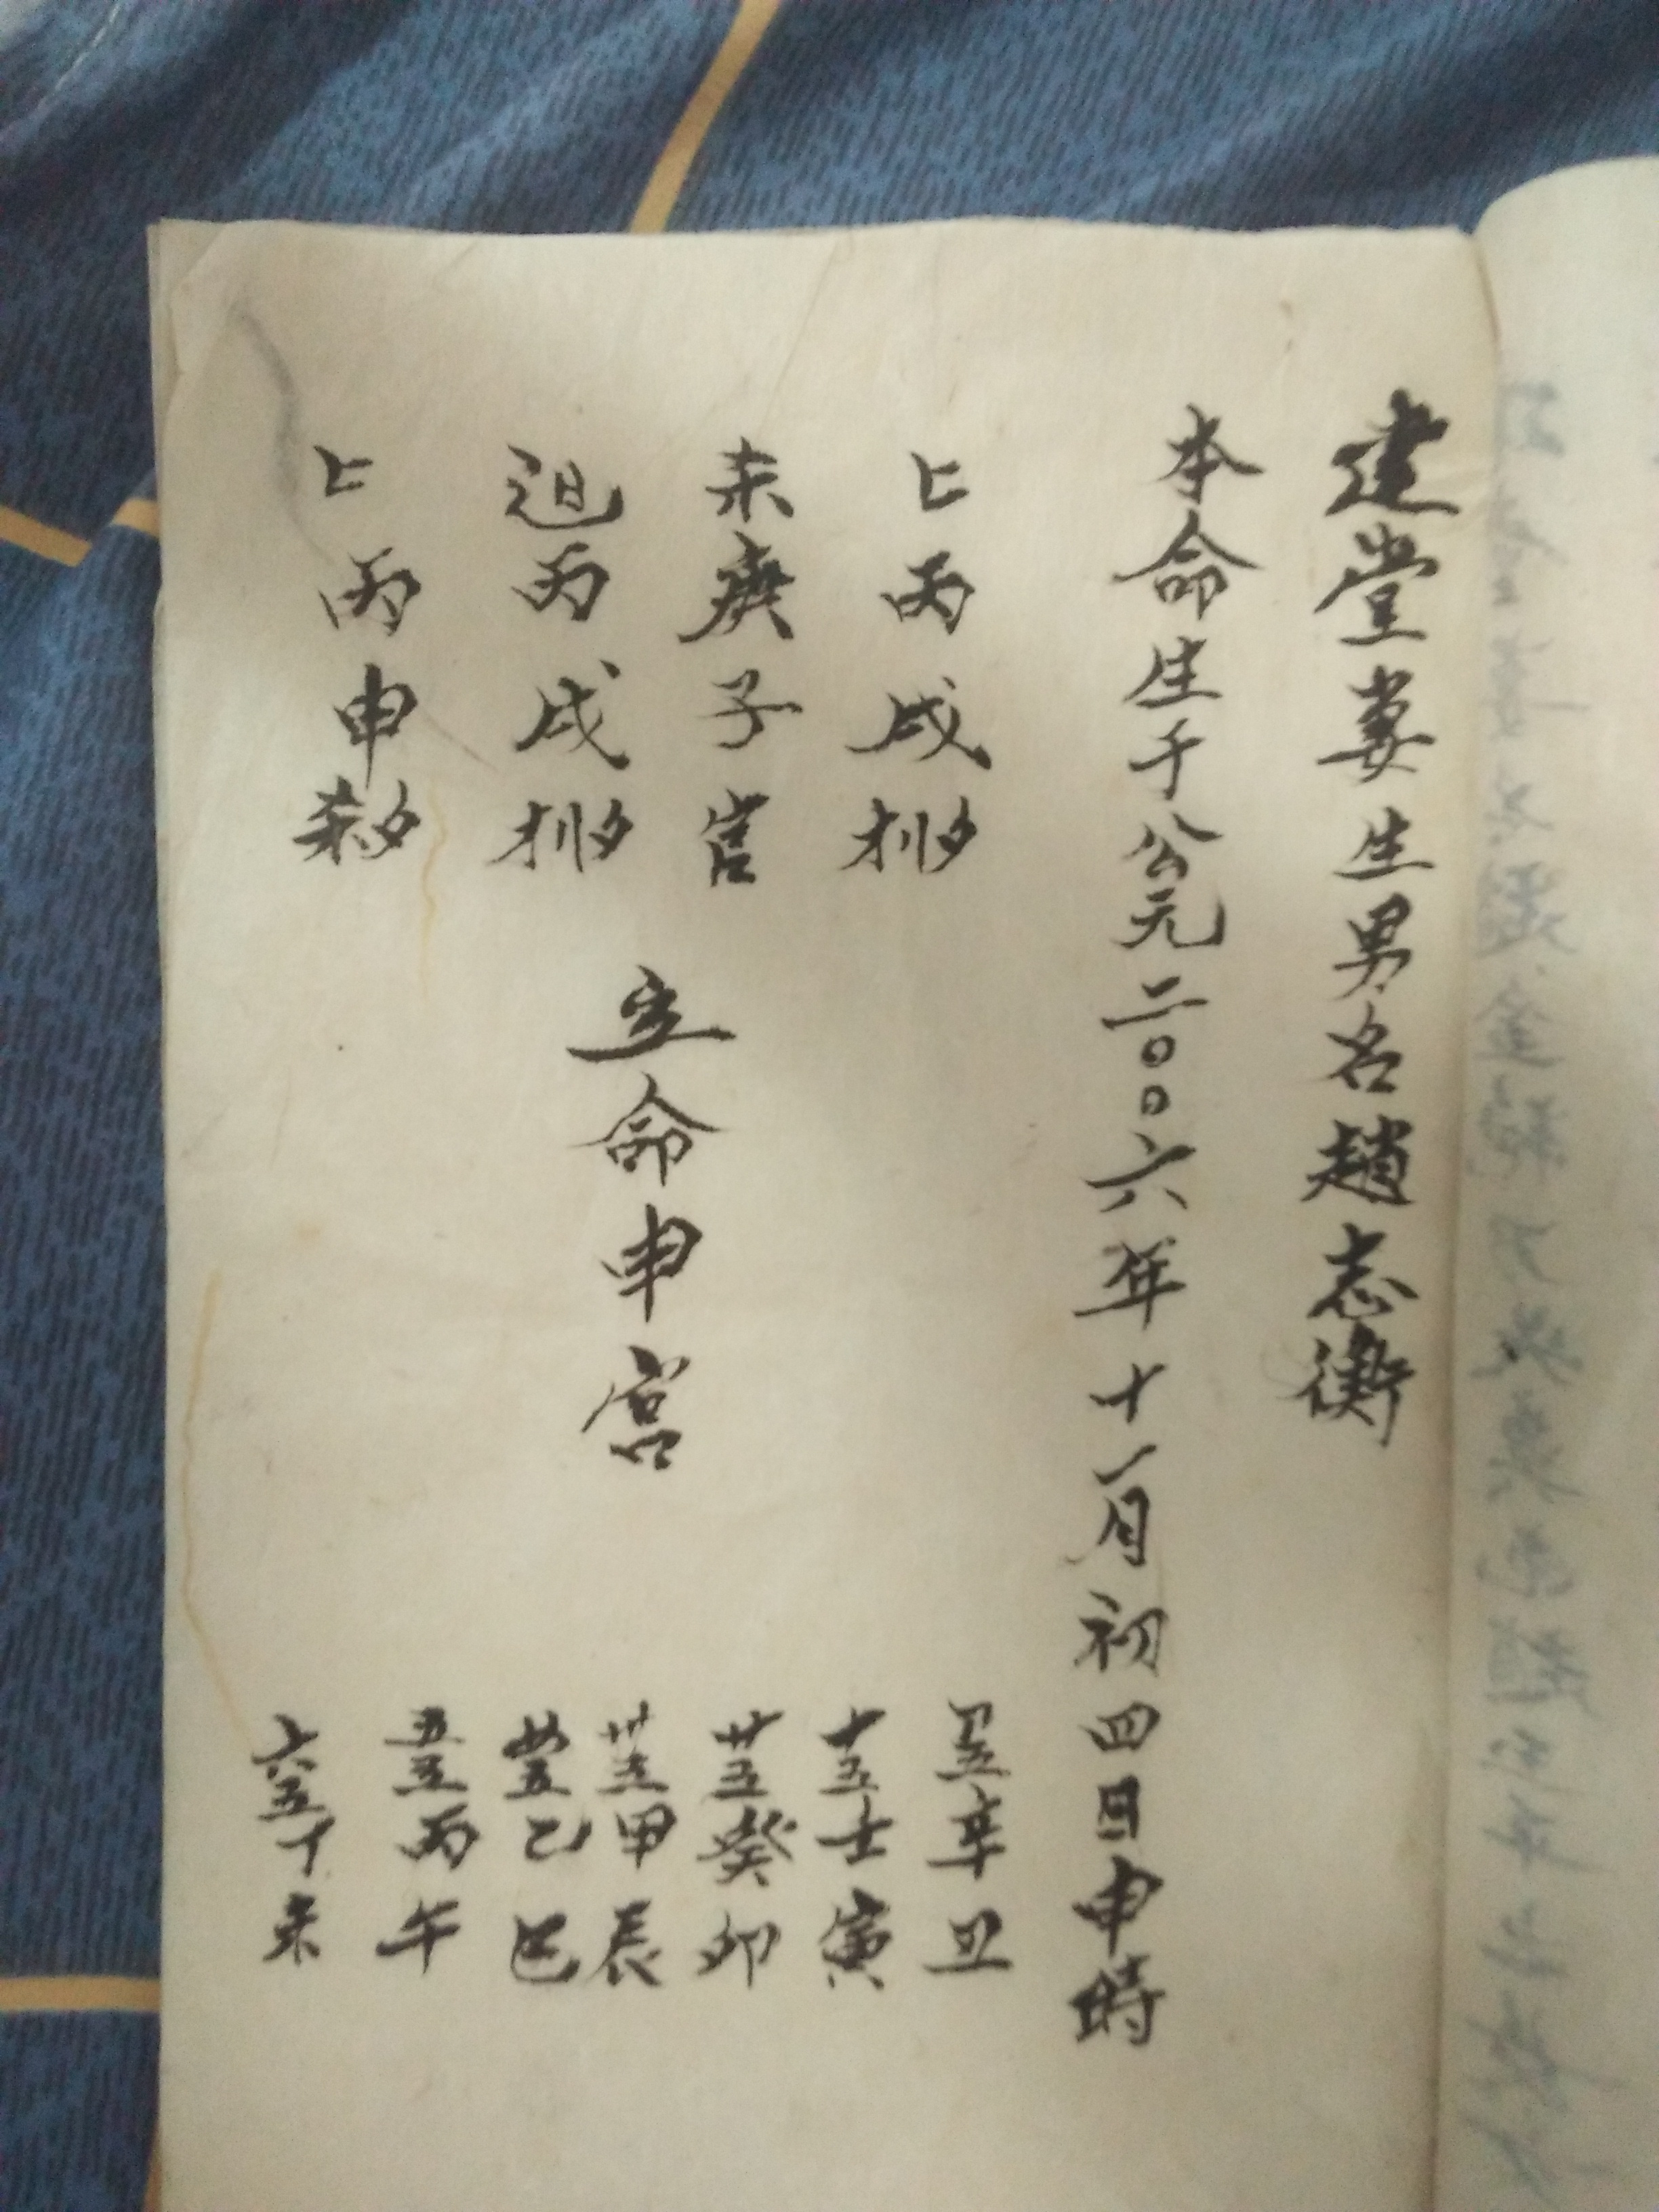 建堂妻生男名趙志衡
本命生于公元二〇〇六年十一月初四日申時
丙戌
庚子官
丙戌
丙申
立命申宮
五辛丑
十五壬寅
廿五癸卯
卅五甲辰
五乙巳
五五丙午
六五丁未